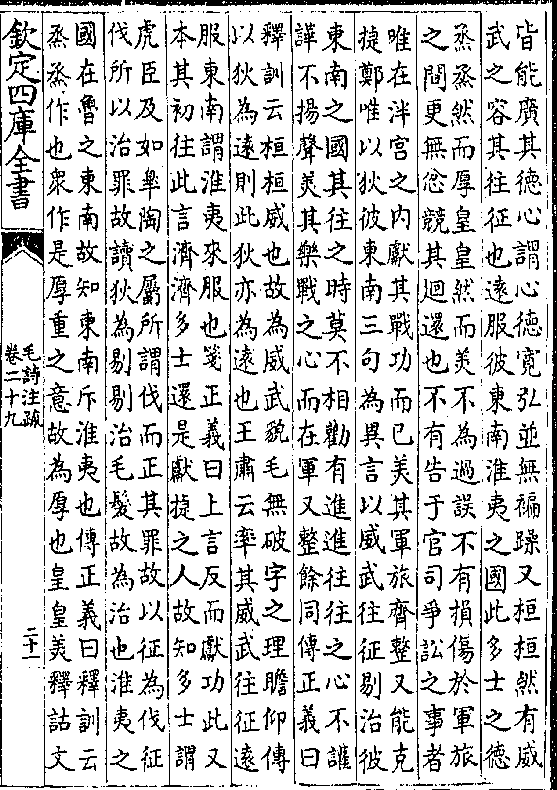 皆能廣其德心謂心德寬弘並無褊躁又桓桓然有威
武之容其往征也遠服彼東南淮夷之國此多士之德
烝烝然而厚皇皇然而美不為過誤不有損傷於軍旅
之間更無忿競其迴還也不有告于官司爭訟之事者
唯在泮宮之內獻其戰功而已美其軍旅齊整又能克
捷鄭唯以狄彼東南三句為異言以威武往征剔治彼
東南之國其往之時莫不相勸有進進往往之心不讙
譁不揚聲美其樂戰之心而在軍又整餘同傳正義曰
釋訓云桓桓威也故為威武貌毛無破字之理瞻仰傳
以狄為遠則此狄亦為遠也王肅云率其威武往征遠
服東南謂淮夷來服也箋正義曰上言反而獻功此又
本其初往此言濟濟多士還是獻捷之人故知多士謂
虎臣及如臯陶之屬所謂伐而正其罪故以征為伐征
伐所以治罪故讀狄為剔剔治毛髮故為治也淮夷之
國在魯之東南故知東南斥淮夷也傳正義曰釋訓云
烝烝作也衆作是厚重之意故為厚也皇皇美釋詁文
欽定四庫全書
毛詩注疏
卷二十九
二十一